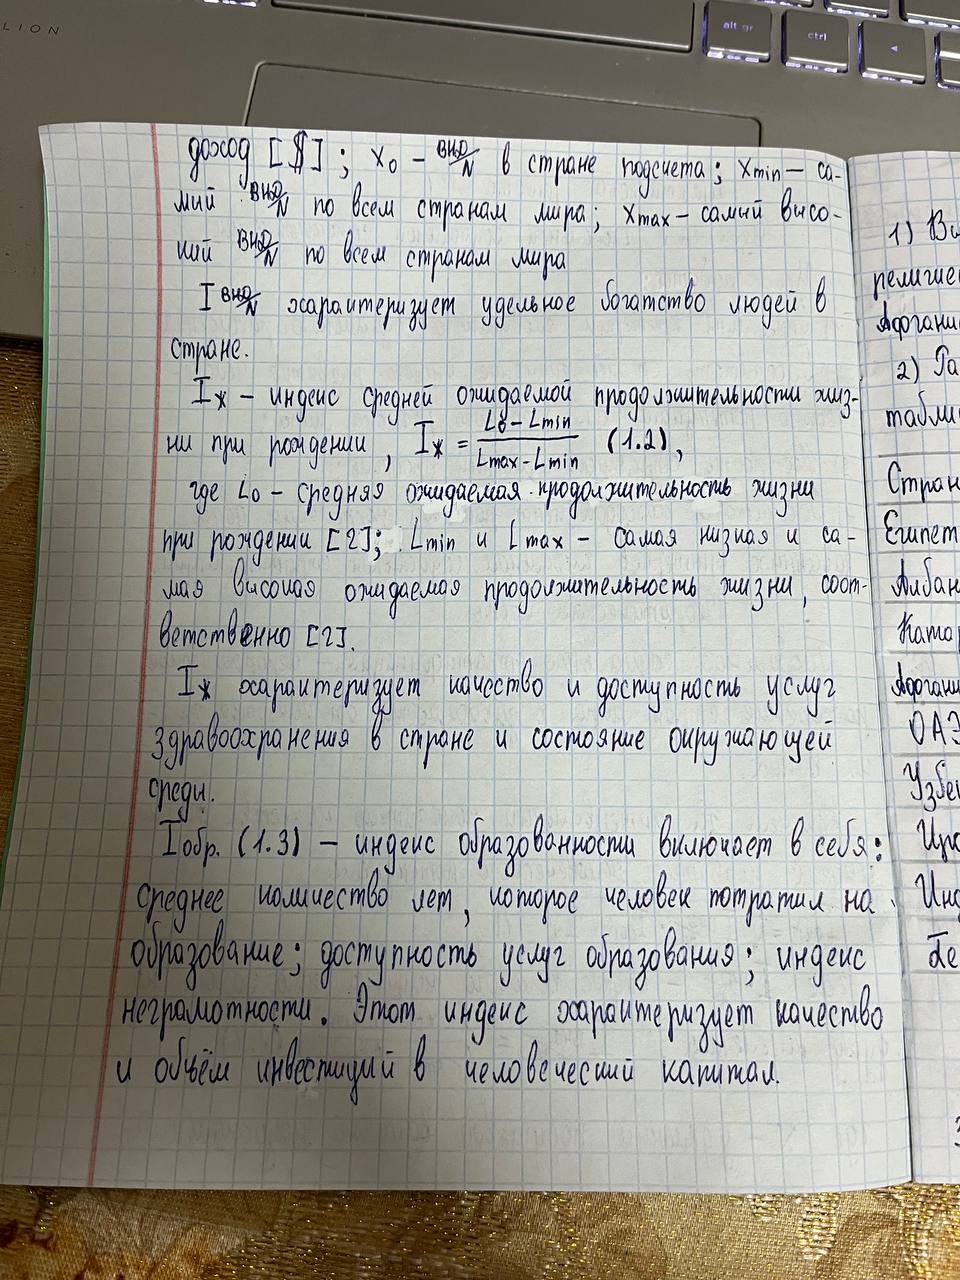 LION
alt gr
ctrl
доход [$]; x₀ – ВНД/N в стране подсчета; xmin – са-
мий ВНД/N по всем странам мира; xmax – самый высо-
кий ВНД/N по всем странам мира
I ВНД/N характеризует удельное богатство людей в
стране.
Iж – индекс средней ожидаемой продолжительности жиз-
ни при рождении, Iж = (L₀ – Lmin)/(Lmax – Lmin) (1.2),
где L₀ – средняя ожидаемая продолжительность жизни
при рождении [2]; Lmin и Lmax – самая низкая и са-
мая высокая ожидаемая продолжительность жизни, соот-
ветственно [2].
Iж характеризует качество и доступность услуг
здравоохранения в стране и состояние окружающей
среды.
Iобр. (1.3) – индекс образованности включает в себя:
среднее количество лет, которое человек потратил на
образование; доступность услуг образования; индекс
неграмотности. Этот индекс характеризует качество
и объём инвестиций в человеческий капитал.
1) Вы
религие
Афгани
2) Ра
табли
Стран
Египет
Албан
Ката
Афгани
ОАЭ
Узбе
Инд